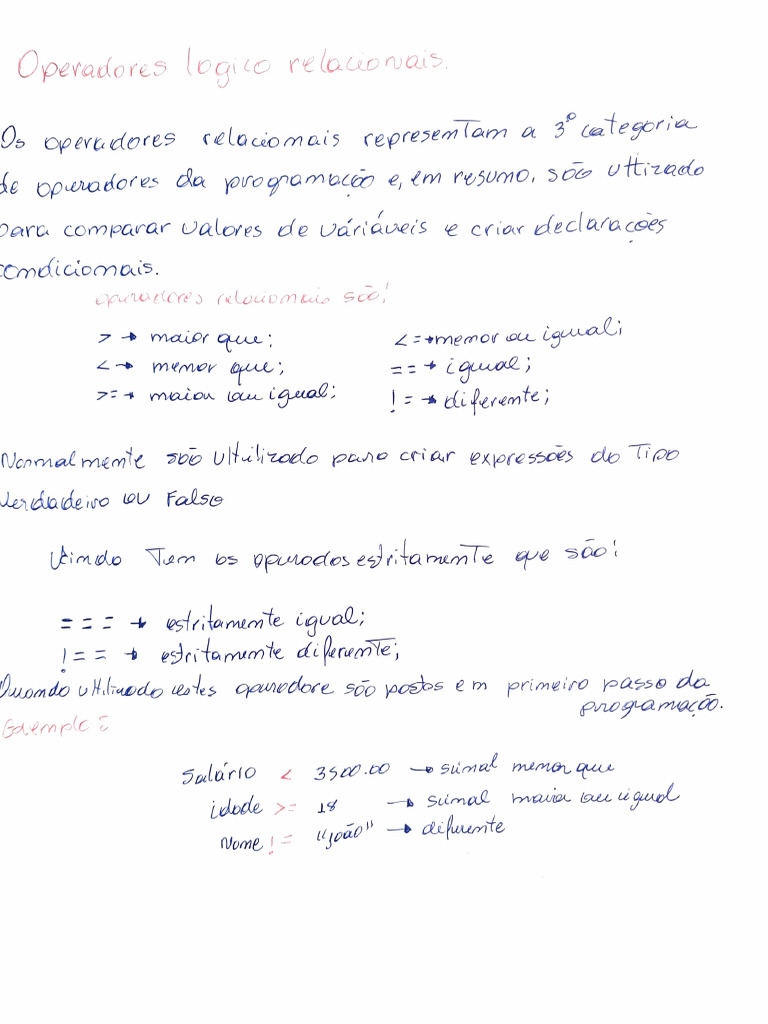 Operadores logico relacionais.
Os operadores relacionais representam a 3º categoria
de operadores da programação e, em resumo, são uttizado
para comparar valores de váriáveis e criar declarações
condicionais.
operadores relacionais são:
> → maior que; <= → menor ou igual;
< → menor que; == → igual;
>= → maior ou igual; != → diferente;
Normalmente são ultilizado para criar expressões do Tipo
Verdadeiro ou Falso
Tem os estritamente que são:
=== → estritamente igual;
!== → estritamente diferente;
Quando ultilizado estes operadore são postos em primeiro passo da
programação.
Exemplo:
Salário < 3500.00 → sinal menor que
idade >= 18 → sinal maior ou igual
Nome != "João" → diferente